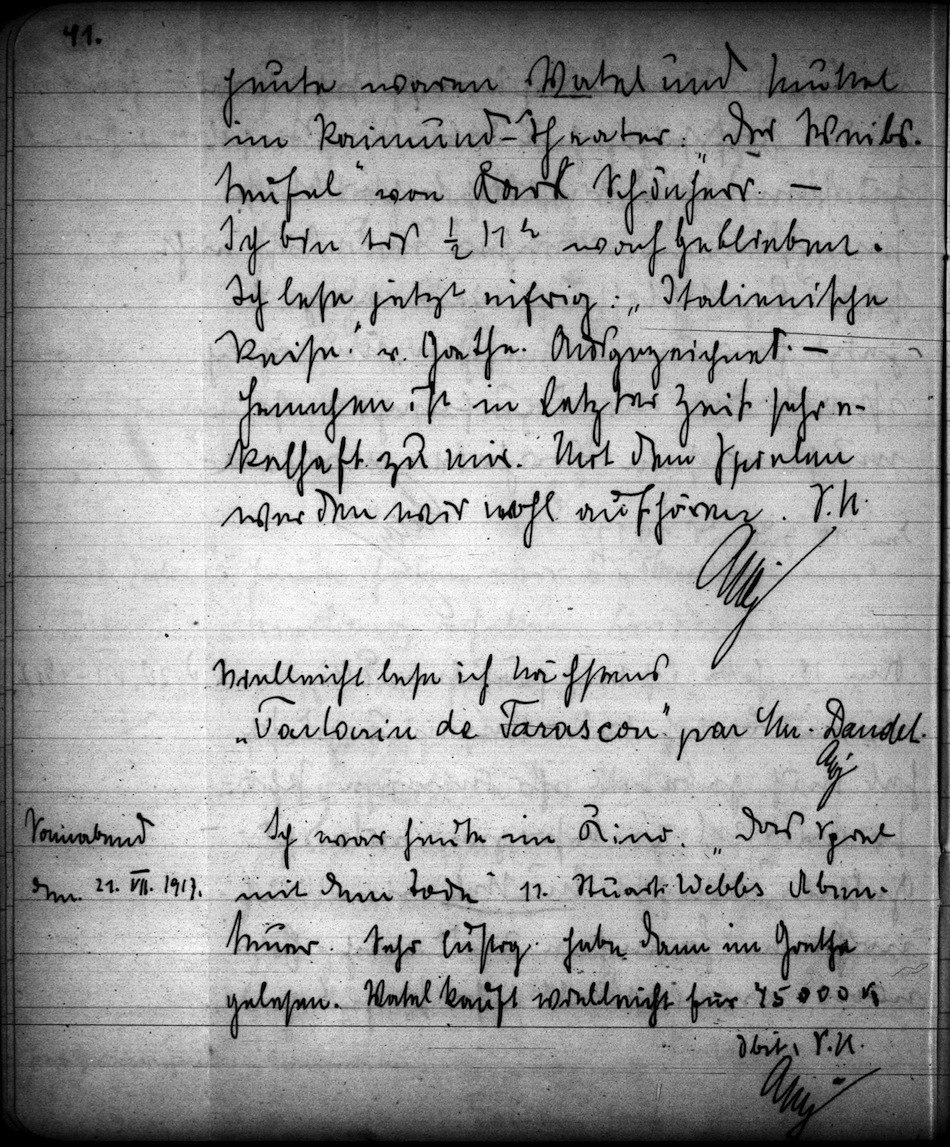 41.
heute waren Vatel und Muttel
im Raimund-Theater: „Der Weibs-
teufel“ von Karl Schönherr. —
Ich bin bis ½ 11 h wach geblieben.
Ich lese jetzt eifrig: „Italienische
Reise“ v. Goethe. Ausgezeichnet. —
Hennchen ist in letzter Zeit sehr e-
kelhaft zu mir. Mit dem Spielen
werden wir wohl aufhören. V.U.
Vielleicht lese ich nächstens
„Tartarin de Tarascon“ par Mr. Daudet.
Sonnabend
den 21. VII. 1917.
Ich war heute im Kino. „Das Spiel
mit dem Tode“ 11. Stuart Webbs Aben-
teuer. Sehr lustig. habe dann im Goethe
gelesen. Vatel kauft vielleicht für 45000 K
Obst. V.U.